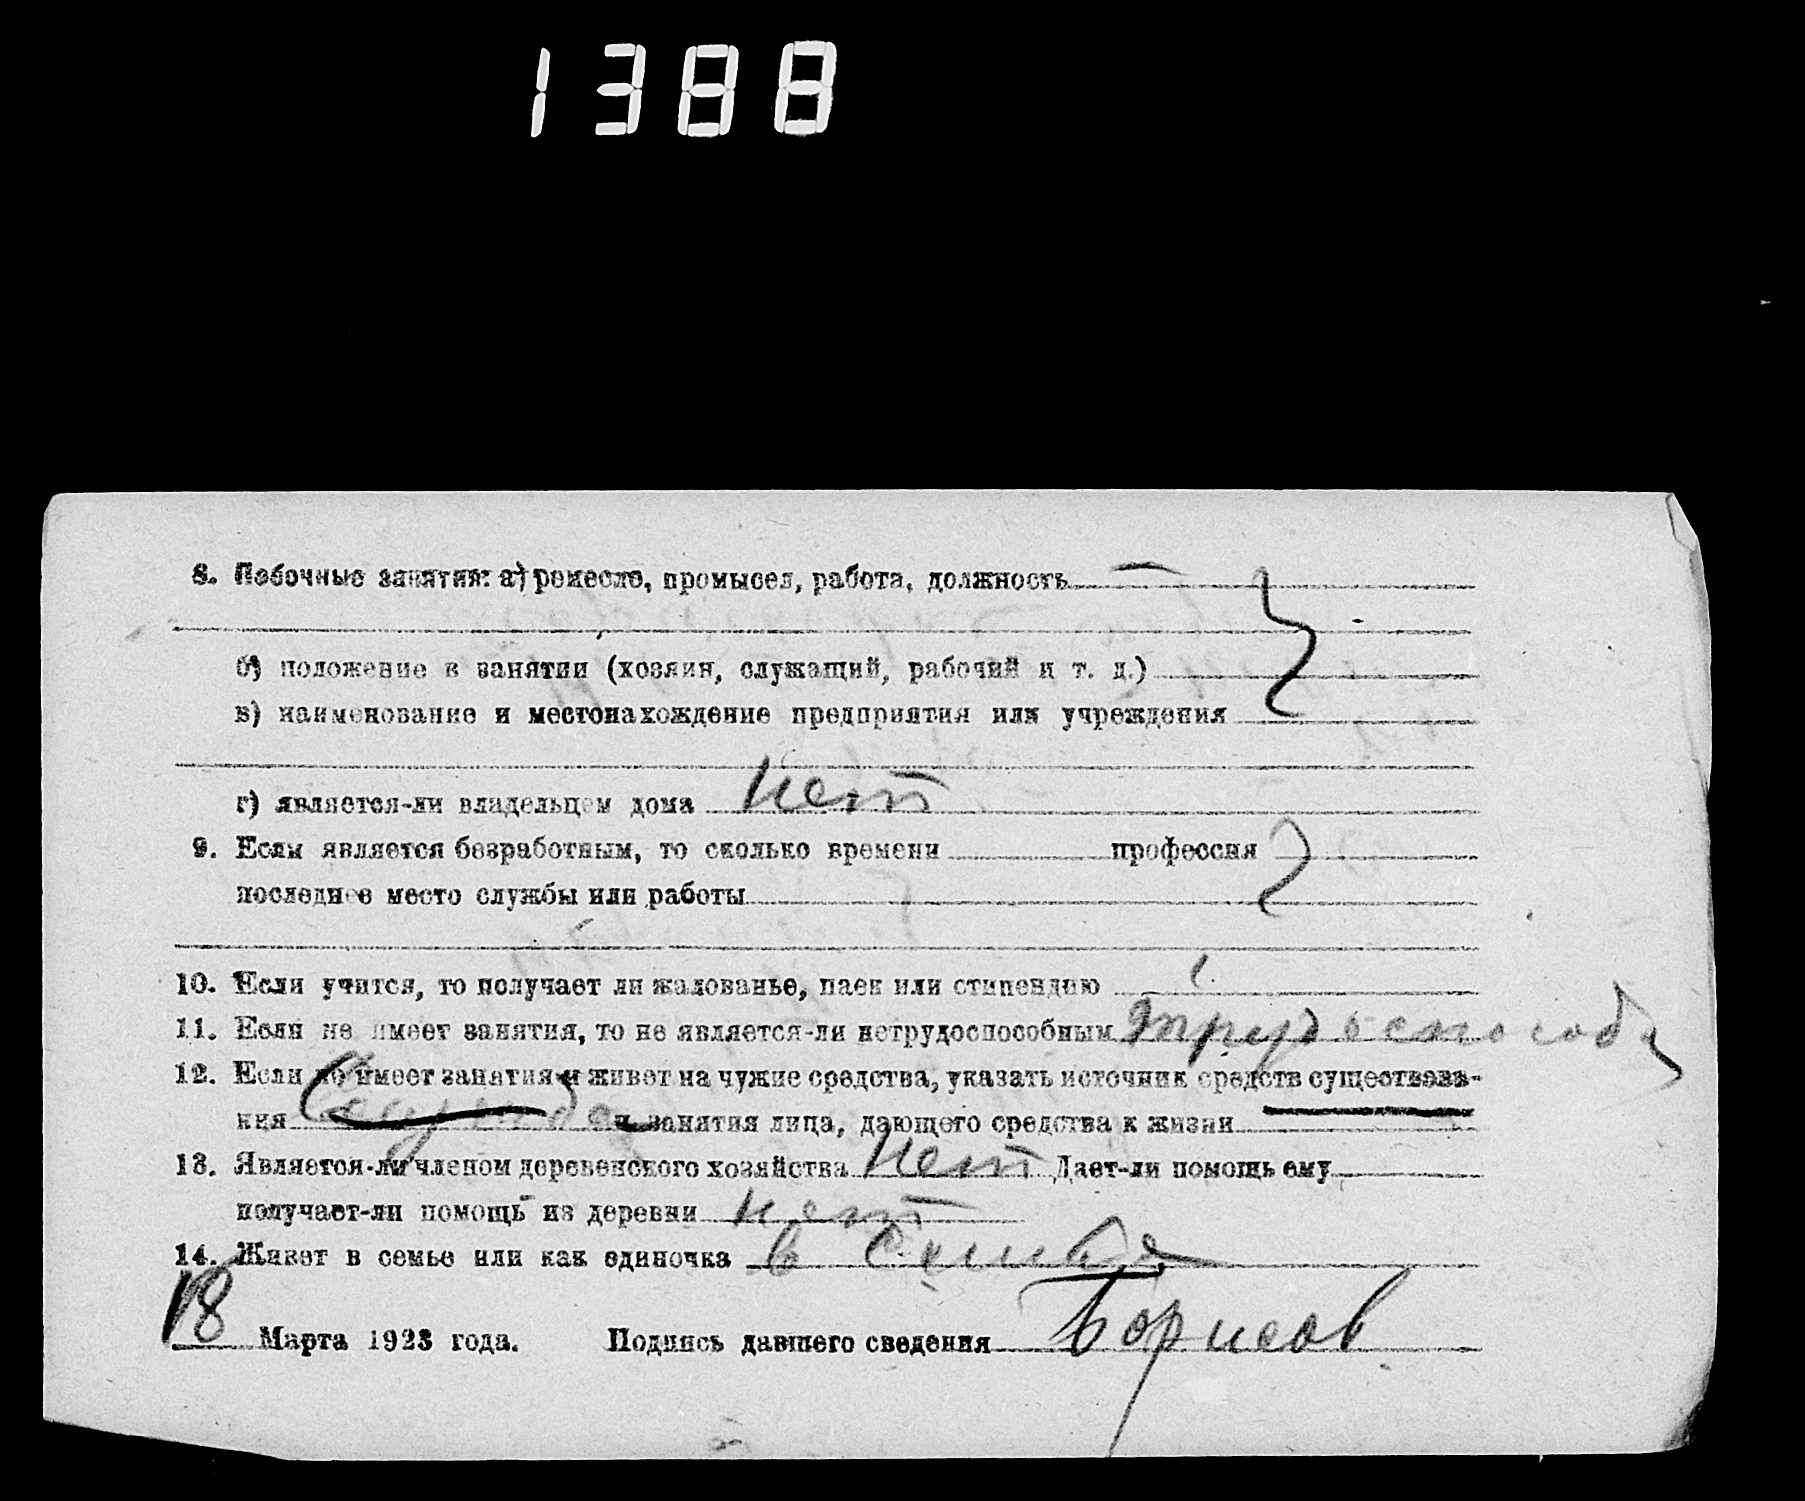 1388
8. Побочные занятия: а) ремесло, промысел, работа, должность —
б) положение в занятии (хозяин, служащий, рабочий и т. д.)
в) наименование и местонахождение предприятия или учреждения
г) является-ли владельцем дома Нет
9. Если является безработным, то сколько времени профессия
последнее место службы или работы
10. Если учится, то получает ли жалованье, паек или стипендию
11. Если не имеет занятия, то не является-ли нетрудоспособным
12. Если не имеет занятия и живет на чужие средства, указать источник средств существова-
ния и занятия лица, дающего средства к жизни
13. Является-ли членом деревенского хозяйства Нет Дает-ли помощь ему
получает-ли помощь из деревни нет
14. Живет в семье или как единочка в семье
18 Марта 1923 года. Подпись давшего сведения Борисов